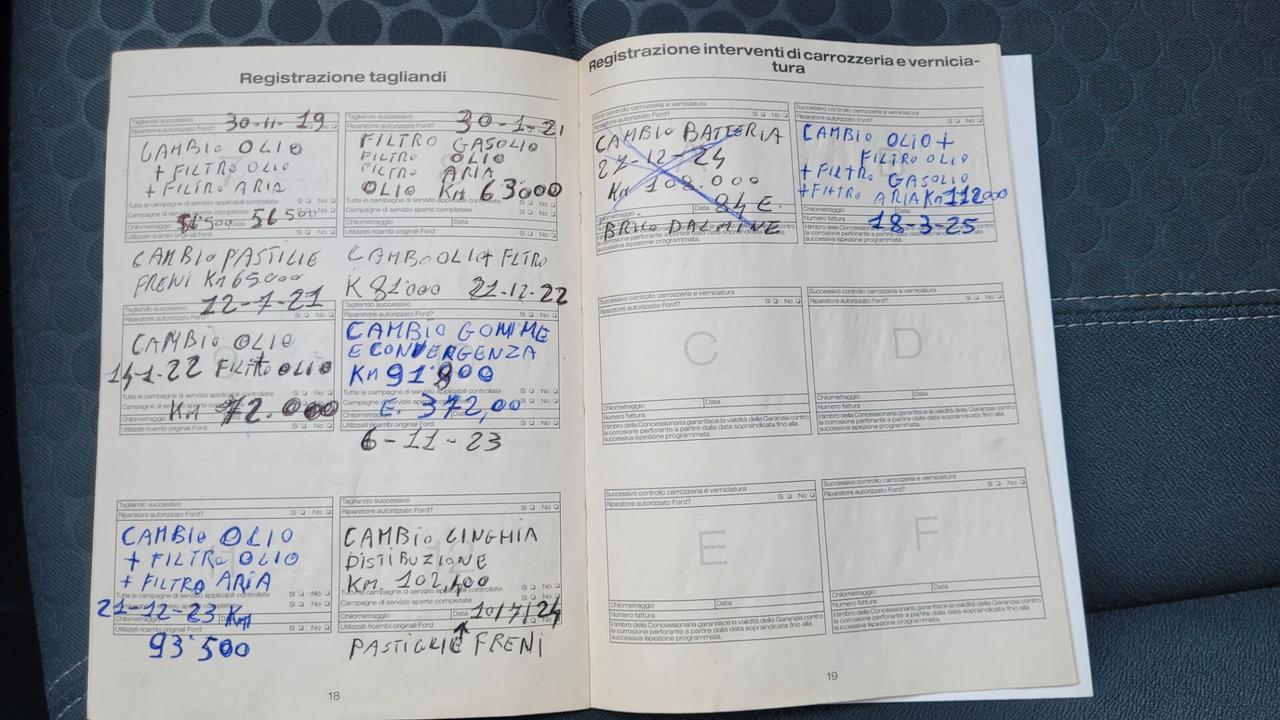 Registrazione tagliandi
Tagliando successivo
30-11-19
Riparatore autorizzato Ford? Sì No
CAMBIO OLIO
+ FILTRO OLIO
+ FILTRO ARIA
Tutte le campagne di servizio applicabili controllate Sì No
Campagne di servizio aperte completate Sì No
56500 56500
Chilometraggio Data
Utilizzati ricambi originali Ford Sì No
30-1-21
FILTRO GASOLIO
FILTRO OLIO
FILTRO ARIA
OLIO KM 63000
Campagne di servizio aperte completate Sì No
Chilometraggio Data
Utilizzati ricambi originali Ford Sì No
CAMBIO PASTILIE
FRENI KM 65.000
12-7-21
CAMBO OLIO+ FLTRO
K 81'000 21-12-22
Tagliando successivo
Riparatore autorizzato Ford? Sì No
CAMBIO OLIO
14-1-22 FILTRO OLIO
Tutte le campagne di servizio applicabili controllate Sì No
KM 72.000
Chilometraggio
Utilizzati ricambi originali Ford Sì No
CAMBIO GOMME
E CONVERGENZA
KM 91'800
Tutte le campagne di servizio applicabili controllate Sì No
E. 372,00
Utilizzati ricambi originali Ford Sì No
6-11-23
Tagliando successivo Sì No
Riparatore autorizzato Ford?
CAMBIO OLIO
+ FILTRO OLIO
+ FILTRO ARIA
Tutte le campagne di servizio applicabili controllate Sì No
21-12-23 KM
Utilizzati ricambi originali Ford Sì No
93'500
Tagliando successivo Sì No
Riparatore autorizzato Ford?
CAMBIO CINGHIA
DISTIBUZIONE
KM. 102,400
Tutte le campagne di servizio applicabili controllate Sì No
Campagne di servizio aperte completate Sì No
Chilometraggio Data 10/7/24
Utilizzati ricambi originali Ford Sì No
PASTIGLIE FRENI
18
Registrazione interventi di carrozzeria e vernicia-
tura
controllo carrozzeria e verniciatura
Riparatore autorizzato Ford? Sì No
CAMBIO BATTERIA
27-12-24
KM 108.000
84 E.
Chilometraggio Data
BRICO DALMINE
la corrosione perforante a partire dalla data sopraindicata fino alla
successiva ispezione programmata.
Successivo controllo carrozzeria e verniciatura
Riparatore autorizzato Ford? Sì No
CAMBIO OLIO +
FILTRO OLIO
+ FILTRO GASOLIO
+ FILTRO ARIA KM 112000
Chilometraggio Data
Numero fattura 18-3-25
Il timbro della Concessionaria garantisce la validità della Garanzia contro
la corrosione perforante a partire dalla data sopraindicata fino alla
successiva ispezione programmata.
Successivo controllo carrozzeria e verniciatura
Riparatore autorizzato Ford? Sì No
C
Chilometraggio Data
Numero fattura
Il timbro della Concessionaria garantisce la validità della Garanzia contro
la corrosione perforante a partire dalla data sopraindicata fino alla
successiva ispezione programmata.
Successivo controllo carrozzeria e verniciatura
Riparatore autorizzato Ford? Sì No
D
Chilometraggio Data
Numero fattura
Il timbro della Concessionaria garantisce la validità della Garanzia contro
la corrosione perforante a partire dalla data sopraindicata fino alla
successiva ispezione programmata.
Successivo controllo carrozzeria e verniciatura
Riparatore autorizzato Ford? Sì No
E
Chilometraggio Data
Numero fattura
Il timbro della Concessionaria garantisce la validità della Garanzia contro
la corrosione perforante a partire dalla data sopraindicata fino alla
successiva ispezione programmata.
Successivo controllo carrozzeria e verniciatura
Riparatore autorizzato Ford? Sì No
F
Chilometraggio Data
Numero fattura
Il timbro della Concessionaria garantisce la validità della Garanzia contro
la corrosione perforante a partire dalla data sopraindicata fino alla
successiva ispezione programmata.
19